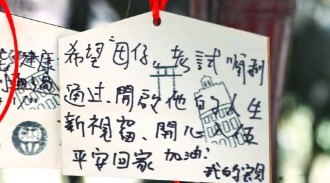 希望囝仔 考試順利
通过、開啟他的人生
新視窗、開心
平安回家 加油!
我的寶貝
健康